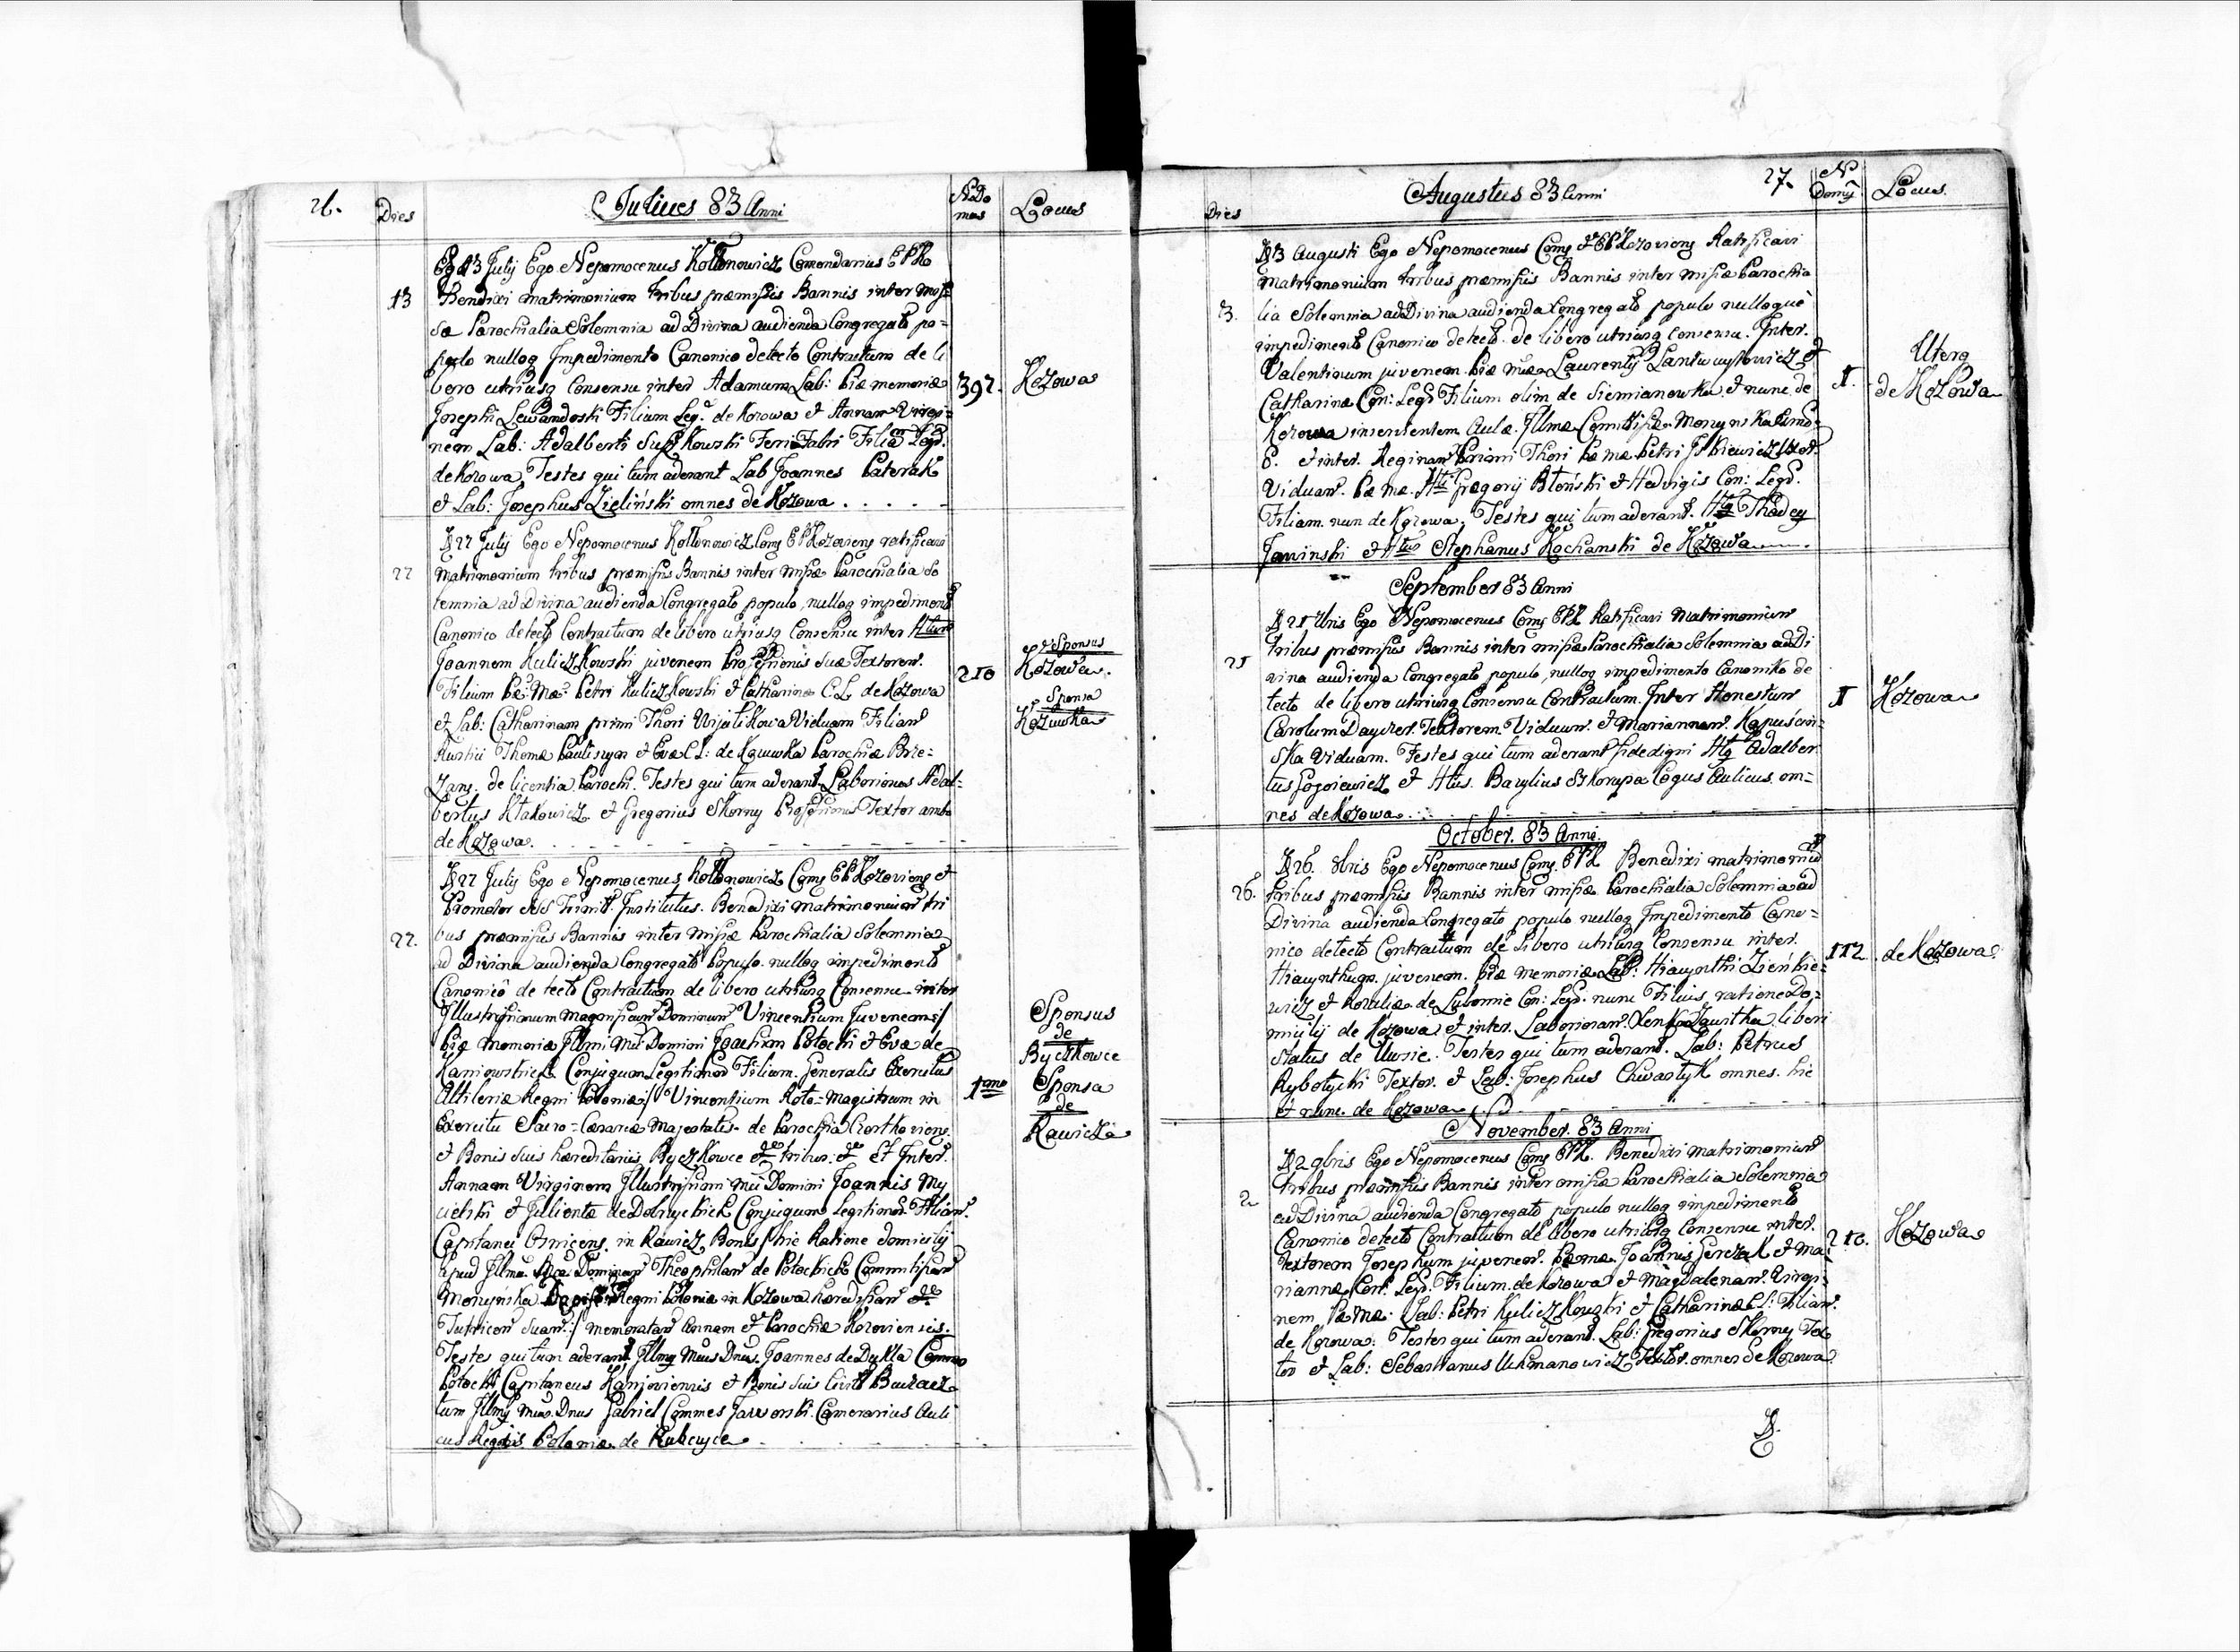 26.
Dies
Julius 83 Anni
No Do
mus
Locus
13 July Ego Nepomocenus Kołtonowicz Comendarius EPK
13
Benedixi matrimonium tribus præmissis Bannis inter Mis
sæ Parochialia Solemnia ad Divina audienda Congregato po=
pulo nulloq Impedimento Canonico detecto Contractum de li
bero utriusq Consensu inter Adamum Lab: Piæ memoriæ
397.
Kozowa
Josephi Lewandoski Filium Leg. de Kozowa et Annam Virgi=
nem Lab: Adalberti Fabri Filiam Legd.
de Kozowa Testes qui tum aderant Lab Joannes Paterak
et Lab: Josephus Zieliński omnes de Kozowa . . . . .
D 22 July Ego Nepomocenus Kołtonowicz Comg EPKozoviens ratificavi
22
Matrimonium tribus præmissis Bannis inter missæ Parochialia So
lemnia ad Divina audienda Congregato populo, nulloq impedimento
Canonico detecto Contractum de libero utriusq Consensu inter Htum
Joannem Kuliczkowski juvenem Professionis suæ Textorem.
Sponsus
210
Kozowa.
Filium Pæ: Mæ: Petri Kuliczkowski et Catharinæ C.L. de Kozowa
Sponsa
Kozuwka
et Lab: Catharinam primi Thori Viduam Filiam
Thomæ et Evæ C L: de Parochiæ Brze=
zans. de licentia Parochi. Testes qui tum aderant Laboriosus Adal=
bertus Kłakowicz et Gregorius Skorny Professionis Textor ambo
de Kozowa. . . . .
D 22 July Ego Nepomocenus Kołtonowicz Comg EPKozoviens et
Promotor SSS Trinit. Institutus. Benedixi matrimonium tri
22.
bus præmissis Bannis inter missæ Parochialia Solemnia
ad Divina audienda Congregato Populo nulloq impedimento
Canonico detecto Contractum de libero utriusq Consensu inter
Illustrissimum Magnificum Dominum Vincentium Juvenem /
Sponsus
de
Piæ memoriæ Illmi Mci Domini Joachim Potocki et Evæ de
Byczkowce
Kaniowskich Conjugum Legitimor Filium. Generalis Exercitus
1mo
Sponsa
de
Attileriæ Regni Poloniæ:/ Vincentium Roto=Magistrum in
Rawicza
Exercitu Sacro=Cæsareæ Majestatis de Parochia Czortkoviens
et Bonis suis hæreditariis Byczkowce tribus: et Inter.
Annam Virginem Illustrissimi Mci Domini Joannis My
cielski et Juliannæ de Conjugum Legitimor Filiam.
Capitanei in Rawicz Bonis hic Ratione domicilij
apud Illmā Dominam Theophilam de Potockich Comitissam
Monyńska Regni Poloniæ in Kozowa hæredissam
Tutricem suam:/ memoratam Annam et Parochiæ Kozoviensis.
Testes qui tum aderant Illmg Mcus Dnus. Joannes de Dukla Commes
Potocki Capitaneus Kanjoviensis et Bonis suis Buczacz
tum Illmg Mcus Dnus Gabriel Commes Jaworski Camerarius Auli
cus Regis Poloniæ de
Dies
Augustus 83 Anni
27.
No
Domg
Locus
D 3 Augusti Ego Nepomocenus Comg EPKozoviens Ratificavi
Matrimonium tribus præmissis Bannis inter missæ Parochia
3.
lia Solemnia ad Divina audienda Congregato populo nulloque
impedimento Canonico detecto. de libero utriusq consensu. Inter.
Valentinum juvenem Piæ mæ Laurentij et
I.
Uterq
de Kozowa
Catharinæ Con: Legd Filium olim de Siemianowka et nunc de
Kozowa inservientem Aulæ Illmæ Comitissæ Monynska
et inter. Reginam Primi Thori Pæ mæ Petri
Viduam. Pæ mæ. Htti Gregorij Błoński et Hedvigis Con: Legd.
Filiam. nun de Kozowa. Testes qui tum aderant. Htg Thadeg
Jawinski et Httus Stephanus Kochanski de Kozowa
September 83 Anni
D 21 7bris Ego Nepomocenus Comg EPK Ratificavi Matrimonium
tribus præmissis Bannis inter missæ Parochialia Solemnia ad Di
21
vina audienda Congregato populo, nulloq impedimento Canoniko de
tecto de libero utriusq Consensu Contractum. Inter Honestum
I
Kozowa
Carolum Textorem Viduum. et Mariannam. Kapuścin=
ska Viduam. Testes qui tum aderant fidedigni Htg Adalber
tus Gogoiewicz et Httus. Bazylius Szkorupa Cogus Aulicus om=
nes de Kozowa . . .
October. 83 Anni.
D 26. 8bris Ego Nepomocenus Comg. EPK Benedixi matrimonium
26.
tribus præmissis Bannis inter missæ Parochialia Solemnia ad
Divina audienda Congregato populo nulloq Impedimento Cano=
nico detecto Contractum de libero utriusq Consensu inter.
112
de Kozowa.
Hiacynthum juvenem. Piæ memoriæ Lab: Hiacynthi Zieńkie=
wicz et Rozaliæ de Con: Legd. nunc Filius ratione Do=
micilij de Kozowa et inter. Laboriosam. liberi
status de Testes qui tum aderant. Lab: Petrus
Rybotycki Textor. et Lab: Josephus Chwastyk omnes. hic
et nunc. de Kozowa
November. 83 Anni
D 2 9bris Ego Nepomocenus Comg EPK. Benedixi matrimonium
tribus præmissis Bannis inter missæ Parochialia Solemnia
2
ad Divina audienda Congregato populo nulloq impedimento
Canonico detecto Contractum de libero utriusq Consensu inter.
210.
Kozowa
Textorem Josephum juvenem. Pæmæ. Joannis Gerczak et Ma=
riannæ Con: Legd. Filium. de Kozowa et Magdalenam. Virgi=
nem Pæ mæ: Lab: Petri Kuliczkowski et Catharinæ C L: Filiam.
de Kozowa: Testes qui tum aderant. Lab: Gregorius Skorny Tex
tor et Lab: Sebastianus Uchmanowicz Textor. omnes de Kozowa